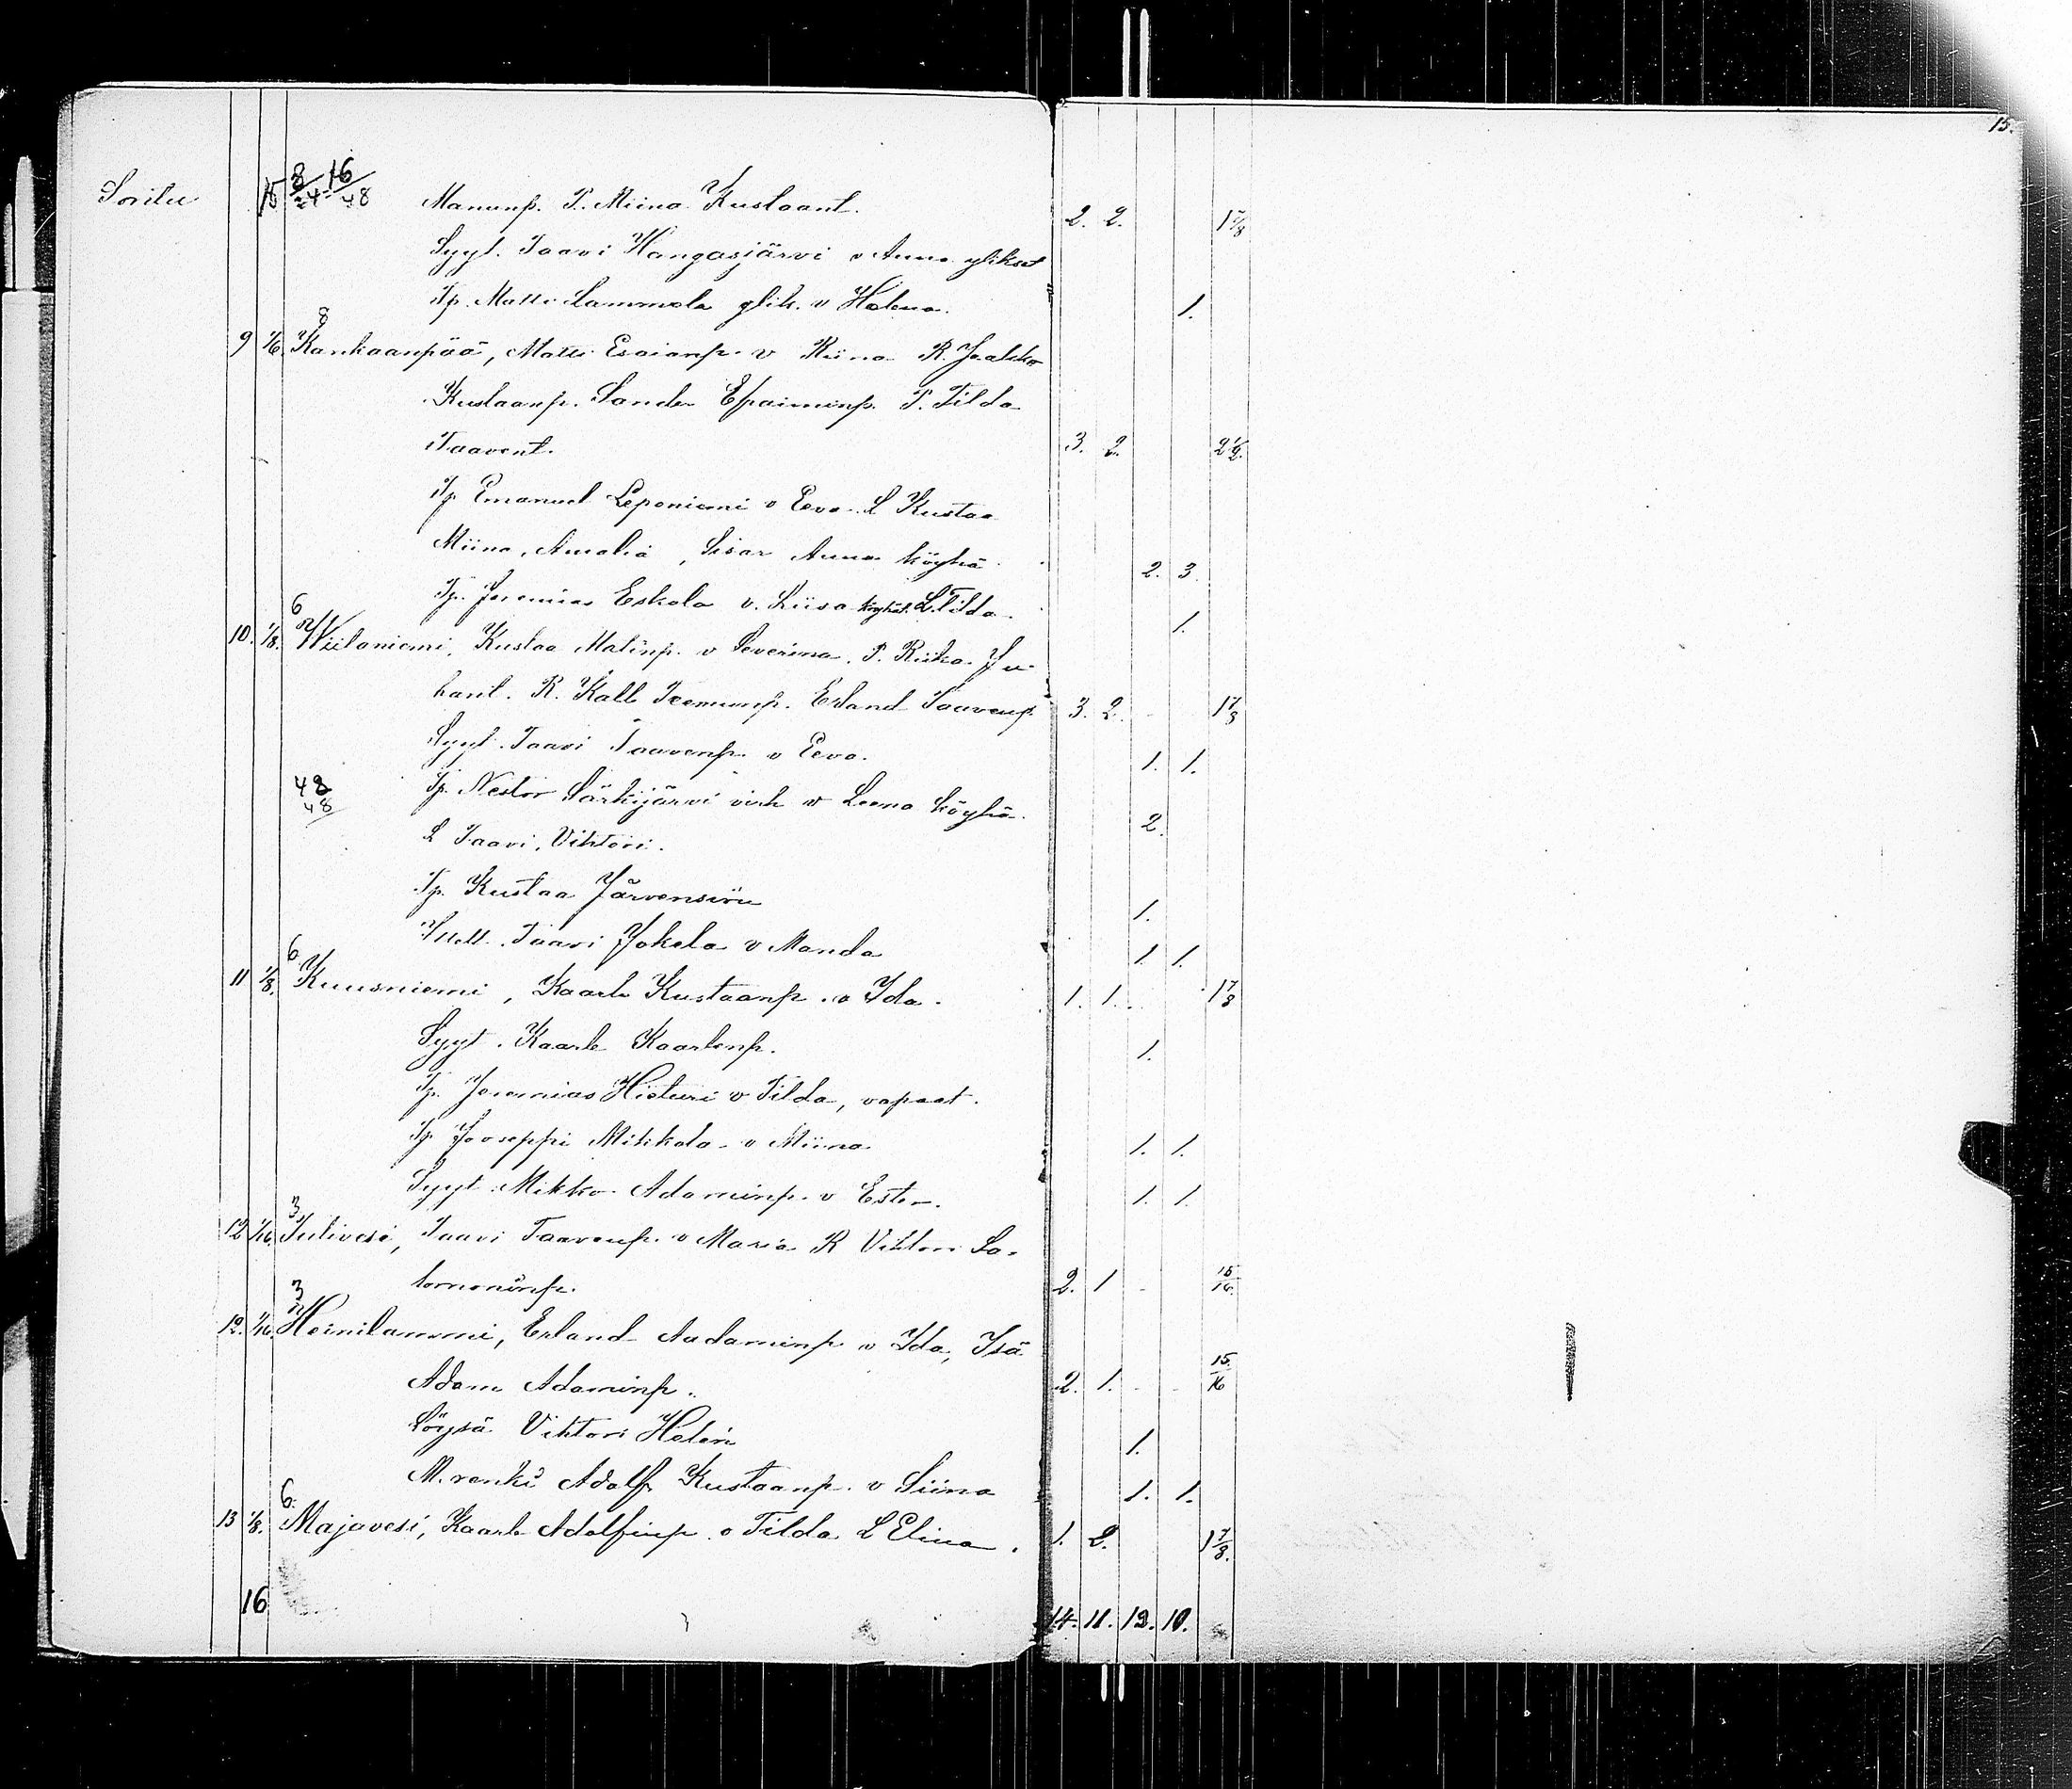 15.
Sorilu 15 8/24 16/48 Manunp. P. Miina Kustaant. 2. 2. 1 7/8
Syyt. Taavi Kangasjärvi v Anna ylikset
Tp. Matti Lammela ylik. v Helena. 1.
8
9 1/6. Kankaanpää, Matti Esaianp. v Riina R. Jaakko
Kustaanp. Sander Efraiminp. P. Tilda
Taavent. 3. 2. 2 1/2.
Tp Emanuel Leponiemi v Eeva L Kustaa
Miina, Amalia, Sisar Anna köyhä. 2. 3.
Tp. Jeremias Eskola v. Liisa köyhät L. Tilda. 1.
6
10. 1/8. Wiitaniemi, Kustaa Matinp. v Severina. P. Riika Ju-
hant. R. Kalle Teemunp. Erland Taavenp. 3. 2. 1 7/8
Syyt. Taavi Taavenp. v Eeva. 1. 1.
48/48 Tp. Nestor Särkijärvi virh v Leena köyhä. 2.
L Taavi, Vihtori.
Tp. Kustaa Järvensivu 1.
Taavi Jokela v Manda 1. 1.
6
11 1/8. Kuusniemi, Kaarle Kustaanp. v Ida. 1. 1. 1 7/8
Syyt. Kaarle Kaarlenp. 1.
Tp. Jeremias Hieturi v Tilda, vapaat.
Tp. Jooseppi Mikkola v Miina 1. 1.
Syyt. Mikko Adaminp. v Ester. 1. 1.
3
12 1/16. Taavi Taavenp. v Maria R Vihtori Sa-
lomoninp. 2. 1 15/16.
3
12. 1/16. Heinilammi, Erland Aadaminp v Ida, Isä
Adam Adaminp. 2. 1. 15/16
Löysä Vihtori Helin 1.
M. renki Adolf Kustaanp. v Siina 1. 1.
6.
13 1/8. Majavesi, Kaarle Adolfinp. v Tilda L Elina. 1. 2. 1 7/8.
16 14. 11. 12. 10.